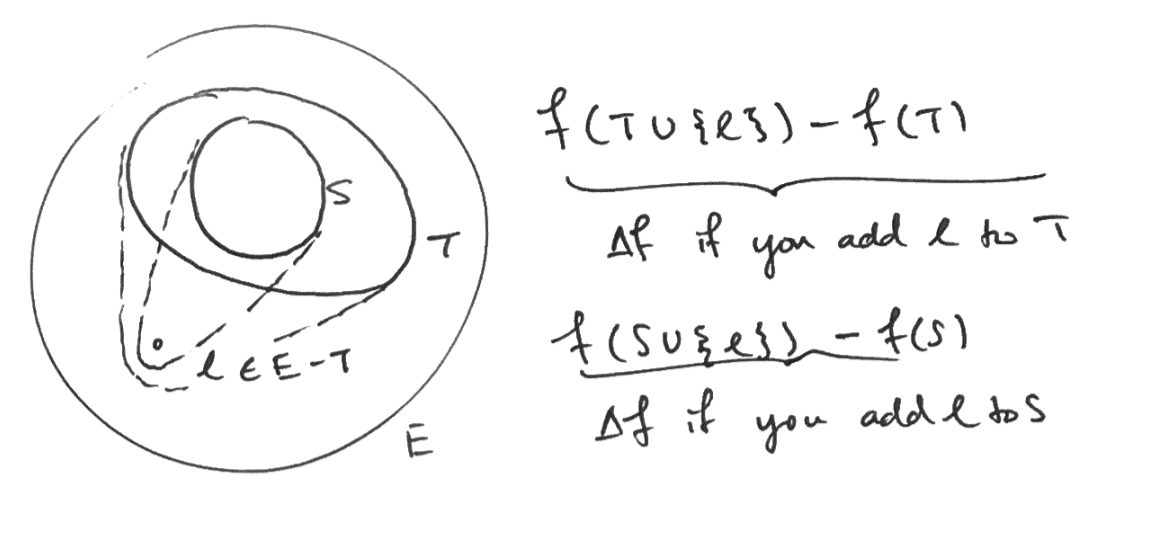 S
T
l ∈ E - T
E
f(T∪{l}) - f(T)
Δf if you add l to T
f(S∪{l}) - f(S)
Δf if you add l to S